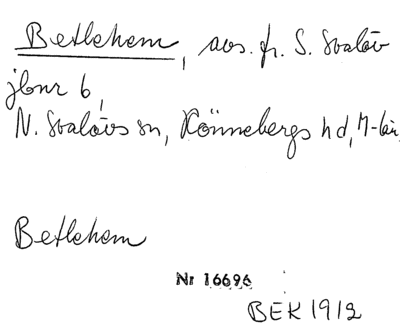 Betlehem, avs. fr. S. Svalöv
jbnr 6,
N. Svalövs sn, Rönnebergs hd, M-län
Betlehem
Nr 16696
BEK 1912